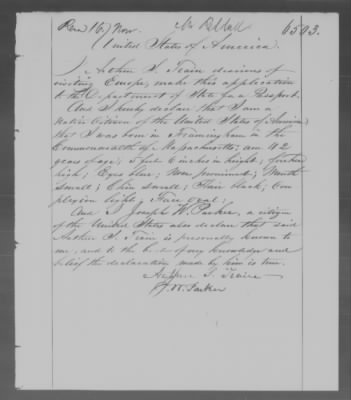 Rec'd 16th Nov. 6503.
(United States of America.
I Arthur S. Train desirous of
visiting Europe, make this application
to the Department of State for a Passport.
And I hereby declare that I am a
Native Citizen of the United States of America;
that I was born in Framingham in the
Commonwealth of Massachusetts; am 42
years of age; 5 feet 6 inches in height; forehead
high; Eyes blue; Nose prominent; Mouth
small; Chin small; Hair black; Com
plexion light; Face oval.
And I Joseph W. Parker, a citizen
of the United States also declare that said
Arthur S. Train is personally known to
me, and to the best of my knowledge and
belief the declaration made by him is true.
Arthur S. Train
J. W. Parker